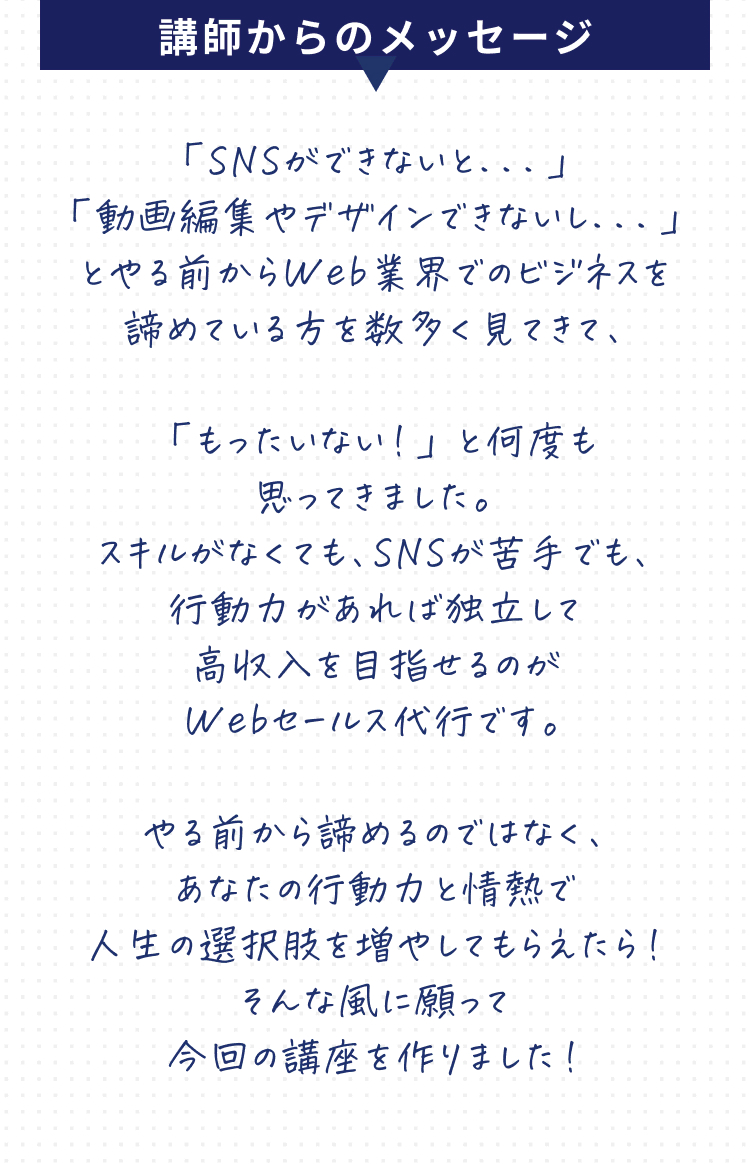 講師からのメッセージ
「SNSができないと...」
「動画編集やデザインできないし...」
とやる前からWeb業界でのビジネスを
諦めている方を数多く見てきて、
「もったいない！」と何度も
思ってきました。
スキルがなくても、SNSが苦手でも、
行動力があれば独立して
高収入を目指せるのが
Webセールス代行です。
やる前から諦めるのではなく、
あなたの行動力と情熱で
人生の選択肢を増やしてもらえたら！
そんな風に願って
今回の講座を作りました！